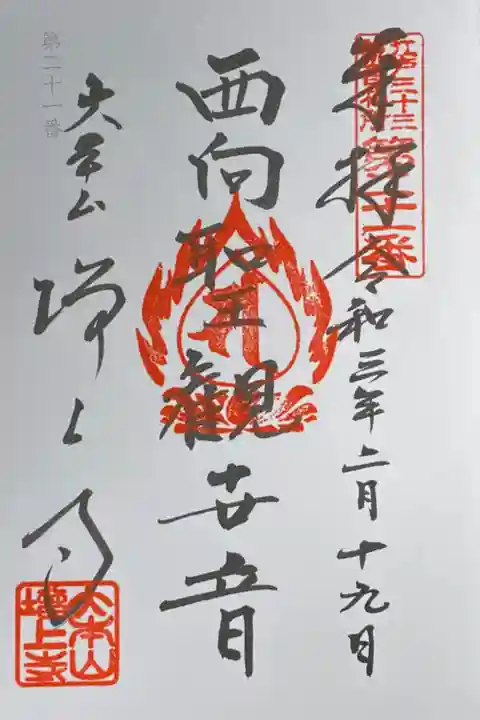 奉拝 令和三年二月十九日
江戸三十三
観音札所
第二十一番
西向聖観世音
大本山
増上寺
大本山
増上寺
第二十一番